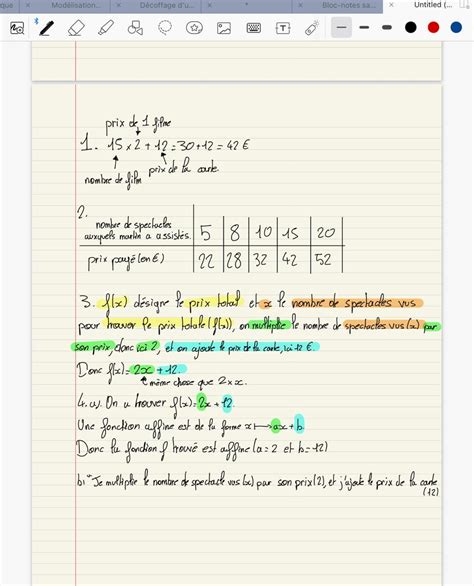 que
Modélisation...
Décoffage d'u...
Bloc-notes sa...
Untitled (...
prix de 1 film
1. 15 × 2 + 12 = 30 + 12 = 42 €
nombre de film
prix de la carte
2.
nombre de spectacles 5 8 10 15 20
auxquels martin a assistés.
prix payé (en €) 22 28 32 42 52
3. f(x) désigne le prix total et x le nombre de spectacles vus
pour trouver le prix totale (f(x)), on multiplie le nombre de spectacles vus (x) par
son prix, donc ici 2, et on ajoute le prix de la carte, ici 12 €.
Donc f(x) = 2x + 12.
même chose que 2 × x.
4. a). On a trouver f(x) = 2x + 12.
Une fonction affine est de la forme x ↦ ax + b.
Donc la fonction f trouvé est affine (a = 2 et b = 12)
b) "Je multiplie le nombre de spectacle vus (x) par son prix (2), et j'ajoute le prix de la carte
(12)